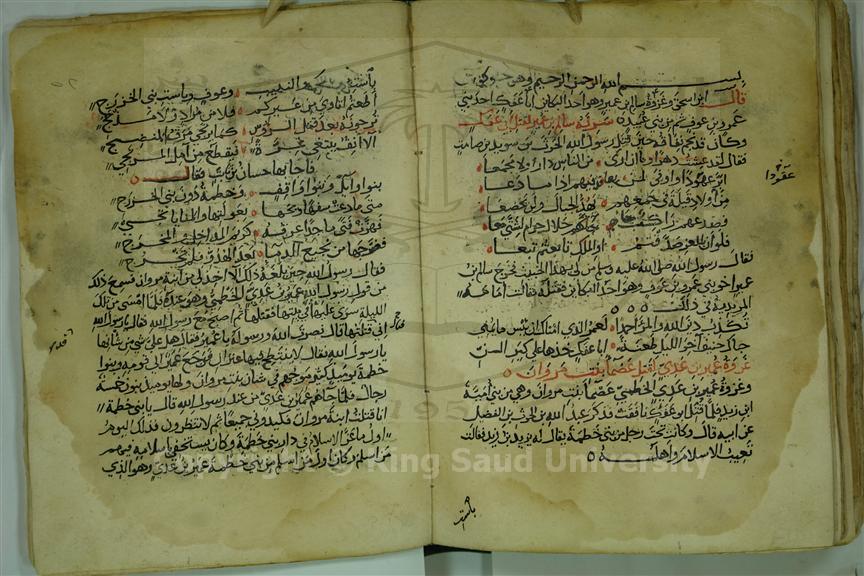 بسم الله الرحمن الرحيم وهو حسبي
قال ابن اسحق وغزوة سالم بن عمير وهو احد البكائين ابا عفك احد بني
عمرو بن عوف ثم من بني عبيدة سرية سالم بن عمير لقتل ابي عفك
وكان قد نجم نفاقه حين قتل رسول الله الحرث بن سويد بن صامت
فقال لقد عشت دهرا وما ان ارى من الناس دارا ولا مجمعا
ابر عهودا واوفى لمن يعاقد فيهم اذا ما دعا
عقودا
من اولاد قيلة في جمعهم يهد الجبال ولن يخضعا
فصدعهم راكب جاءهم حلال حرام لشتى معا
فلو ان بالعز صدقتم او الملك تابعتم تبعا
فقال رسول الله صلى الله عليه وسلم من لي بهذا الخبيث فخرج سالم بن
عمير اخو بني عمرو بن عوف وهو احد البكائين فقتله فقالت امامة
المريدية في ذلك
تكذب دين الله والمرء احمدا لعمر الذي امناك ان بئس ما يمني
حباك حنيف آخر الليل طعنة ابا عفك خذها على كبر السن
غزوة عمير بن عدي لقتل عصماء بنت مروان
وغزوة عمير بن عدي الخطمي عصماء بنت مروان وهي من بني امية
ابن زيد فلما قتل ابو عفك نافقت فذكر عبد الله بن الحرث بن الفضل
عن ابيه قال وكانت تحت رجل من بني خطمة يقال له يزيد بن زيد فقالت
تعيب الاسلام واهله
باست
باست بني مالك والنبيت وعوف وباست بني الخزرج
اطعتم اتاوي من غيركم فلا من مراد ولا مذحج
ترجونه بعد قتل الرؤوس كما يرتجى مرق المنضج
الا انف يبتغي غرة فيقطع من امل المرتجي
فاجابها حسان بن ثابت فقال
بنو وائل وبنو واقف وخطمة دون بني الخزرج
متى ما دعت سفها ويحها بعولتها والمنايا تجي
فهزت فتى ماجدا عرقه كريم المداخل والمخرج
فضرجها من نجيع الدما بعد الهدو فلم يحرج
فقال رسول الله حين بلغه ذلك الا اخذ لي من ابنة مروان فسمع ذلك
من قول رسول الله عمير بن عدي الخطمي وهو عنده فلما امسى من تلك
الليلة سرى عليها في بيتها فقتلها ثم اصبح مع رسول الله فقال يا رسول الله
اني قتلتها قال نصرت الله ورسوله يا عمير فقال هل علي شيء من شانها
يا رسول الله فقال لا ينتطح فيها عنزان فرجع عمير الى قومه وبنوا
خطمة يومئذ كثير موجهم في شان بنت مروان ولها يومئذ بنون خمسة
رجال فلما جاهم عمير بن عدي من عند رسول الله قال يا بني خطمة
انا قتلت ابنة مروان فكيدوني جميعا ثم لا تنظرون فذلك اليوم
اول ما عز الاسلام في دار بني خطمة وكان يستخفي باسلامه فيهم
من اسلم وكان اول من اسلم من بني خطمة عمير بن عدي وهو الذي
Copyright © King Saud University
1957